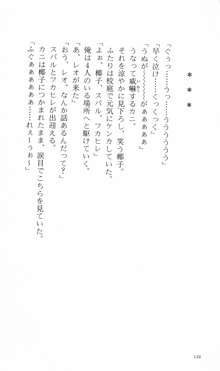 ＊＊＊
「ぐうっ……うっ……うううううう」
「早く泣け……くっくっくっ」
「うぬが～～～～～ぁぁぁぁぁ」
うなって威嚇するカニ。
それを涼やかに見下ろし、笑う椰子。
相変わらず校庭で元気にケンカしていた。
「よお、椰子、スバル、フカヒレ」
俺は4人のいる場所へと駆けていく。
「あ、レオが来た」
「おう、レオ、なんか話あるんだって？」
スバルとフカヒレが出迎える。
カニは椰子につかまれたまま、涙目でこちらを見ていた。
「ふぐぁぁぁぁぁぁ……れえーうぉ～」